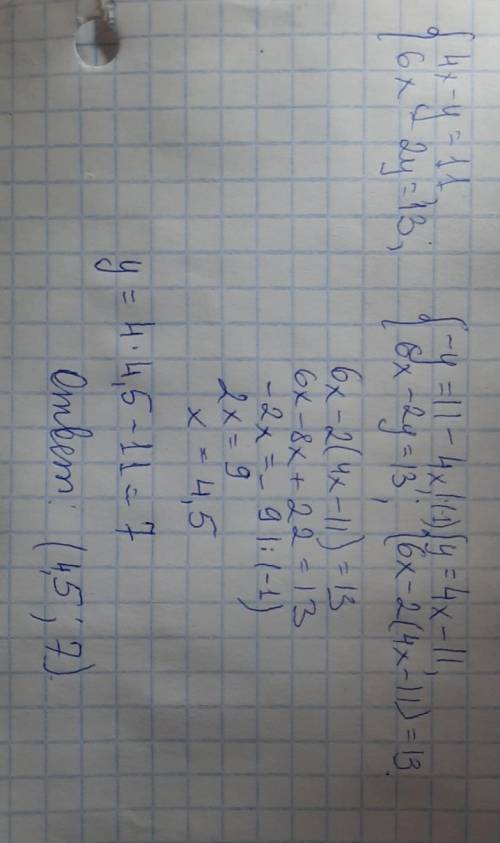 {4x-y=11 {-y=11-4x |:(-1) {y=4x-11,
{6x-2y=13, {6x-2y=13, {6x-2(4x-11)=13.
6x-2(4x-11)=13
6x-8x+22=13
-2x=-9 |:(-1)
2x=9
x=4,5
y=4·4,5-11=7
Ответ: (4,5; 7)